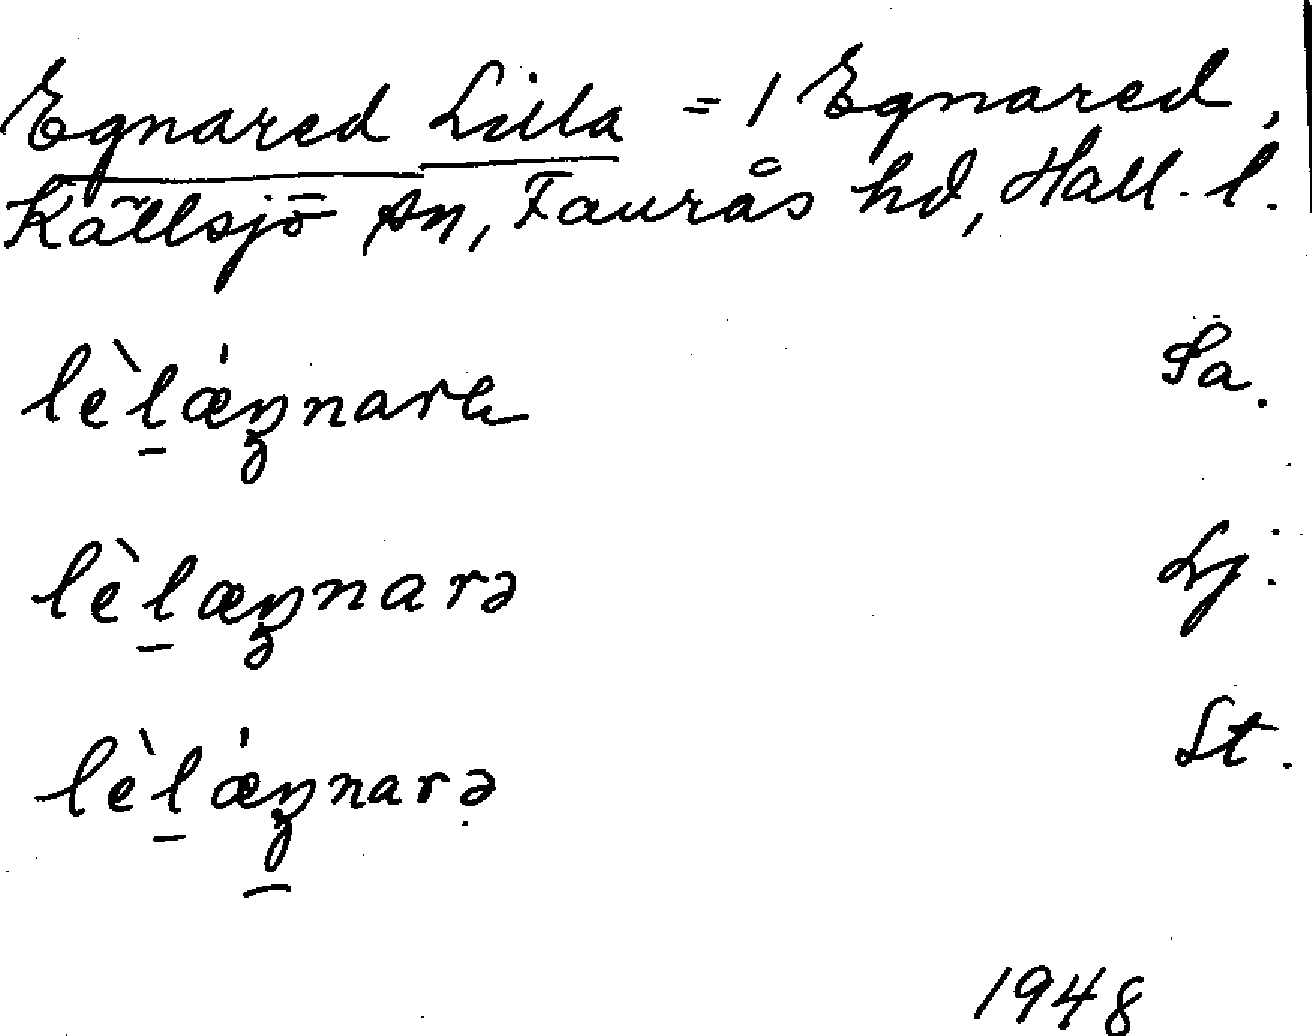 Egnared Lilla = 1 Egnared,
Källsjö sn, Faurås hd, Hall. l.
lèlǽŋnarɐ Sa.
lèlæŋnarə Lj.
lèlǽŋnarə St.
1948